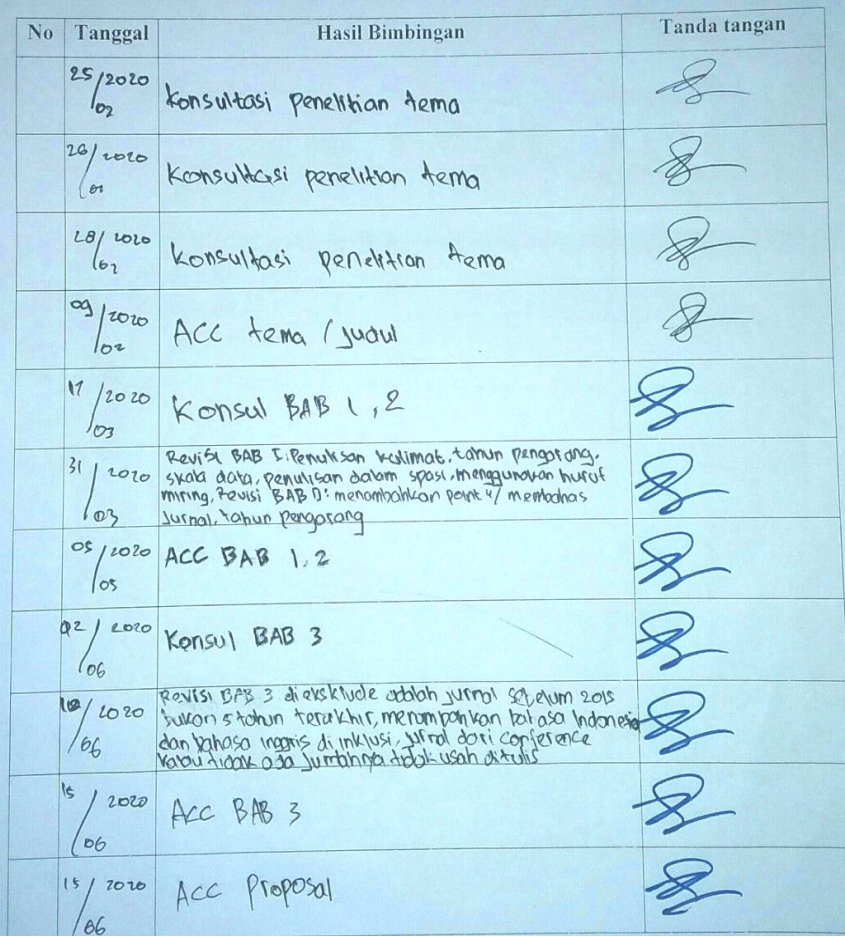 No Tanggal Hasil Bimbingan Tanda tangan
25/2020
/02 Konsultasi penelitian tema
26/2020
Konsultasi penelitian tema
28/2020
/02 Konsultasi penelitian tema
09/2020
/02 ACC tema / Judul
17/2020
/03 Konsul BAB 1,2
31/2020
/03
Revisi BAB I: Penulisan kalimat, tahun pengarang,
skala data, penulisan dalam spasi, menggunakan huruf
miring, Revisi BAB : menambahkan point membahas
Jurnal, tahun pengarang
05/2020
/05 ACC BAB 1,2
02/2020
/06 Konsul BAB 3
10/2020
/06
Revisi BAB 3 di eksklude adalah jurnal sebelum 2015
bukan 5 tahun terakhir, menambahkan bahasa Indonesia
dan bahasa inggris di inklusi, Jurnal dari conference
kalau tidak ada Jumlahnya tidak usah ditulis
15/2020
/06 ACC BAB 3
15/2020
/06 ACC Proposal